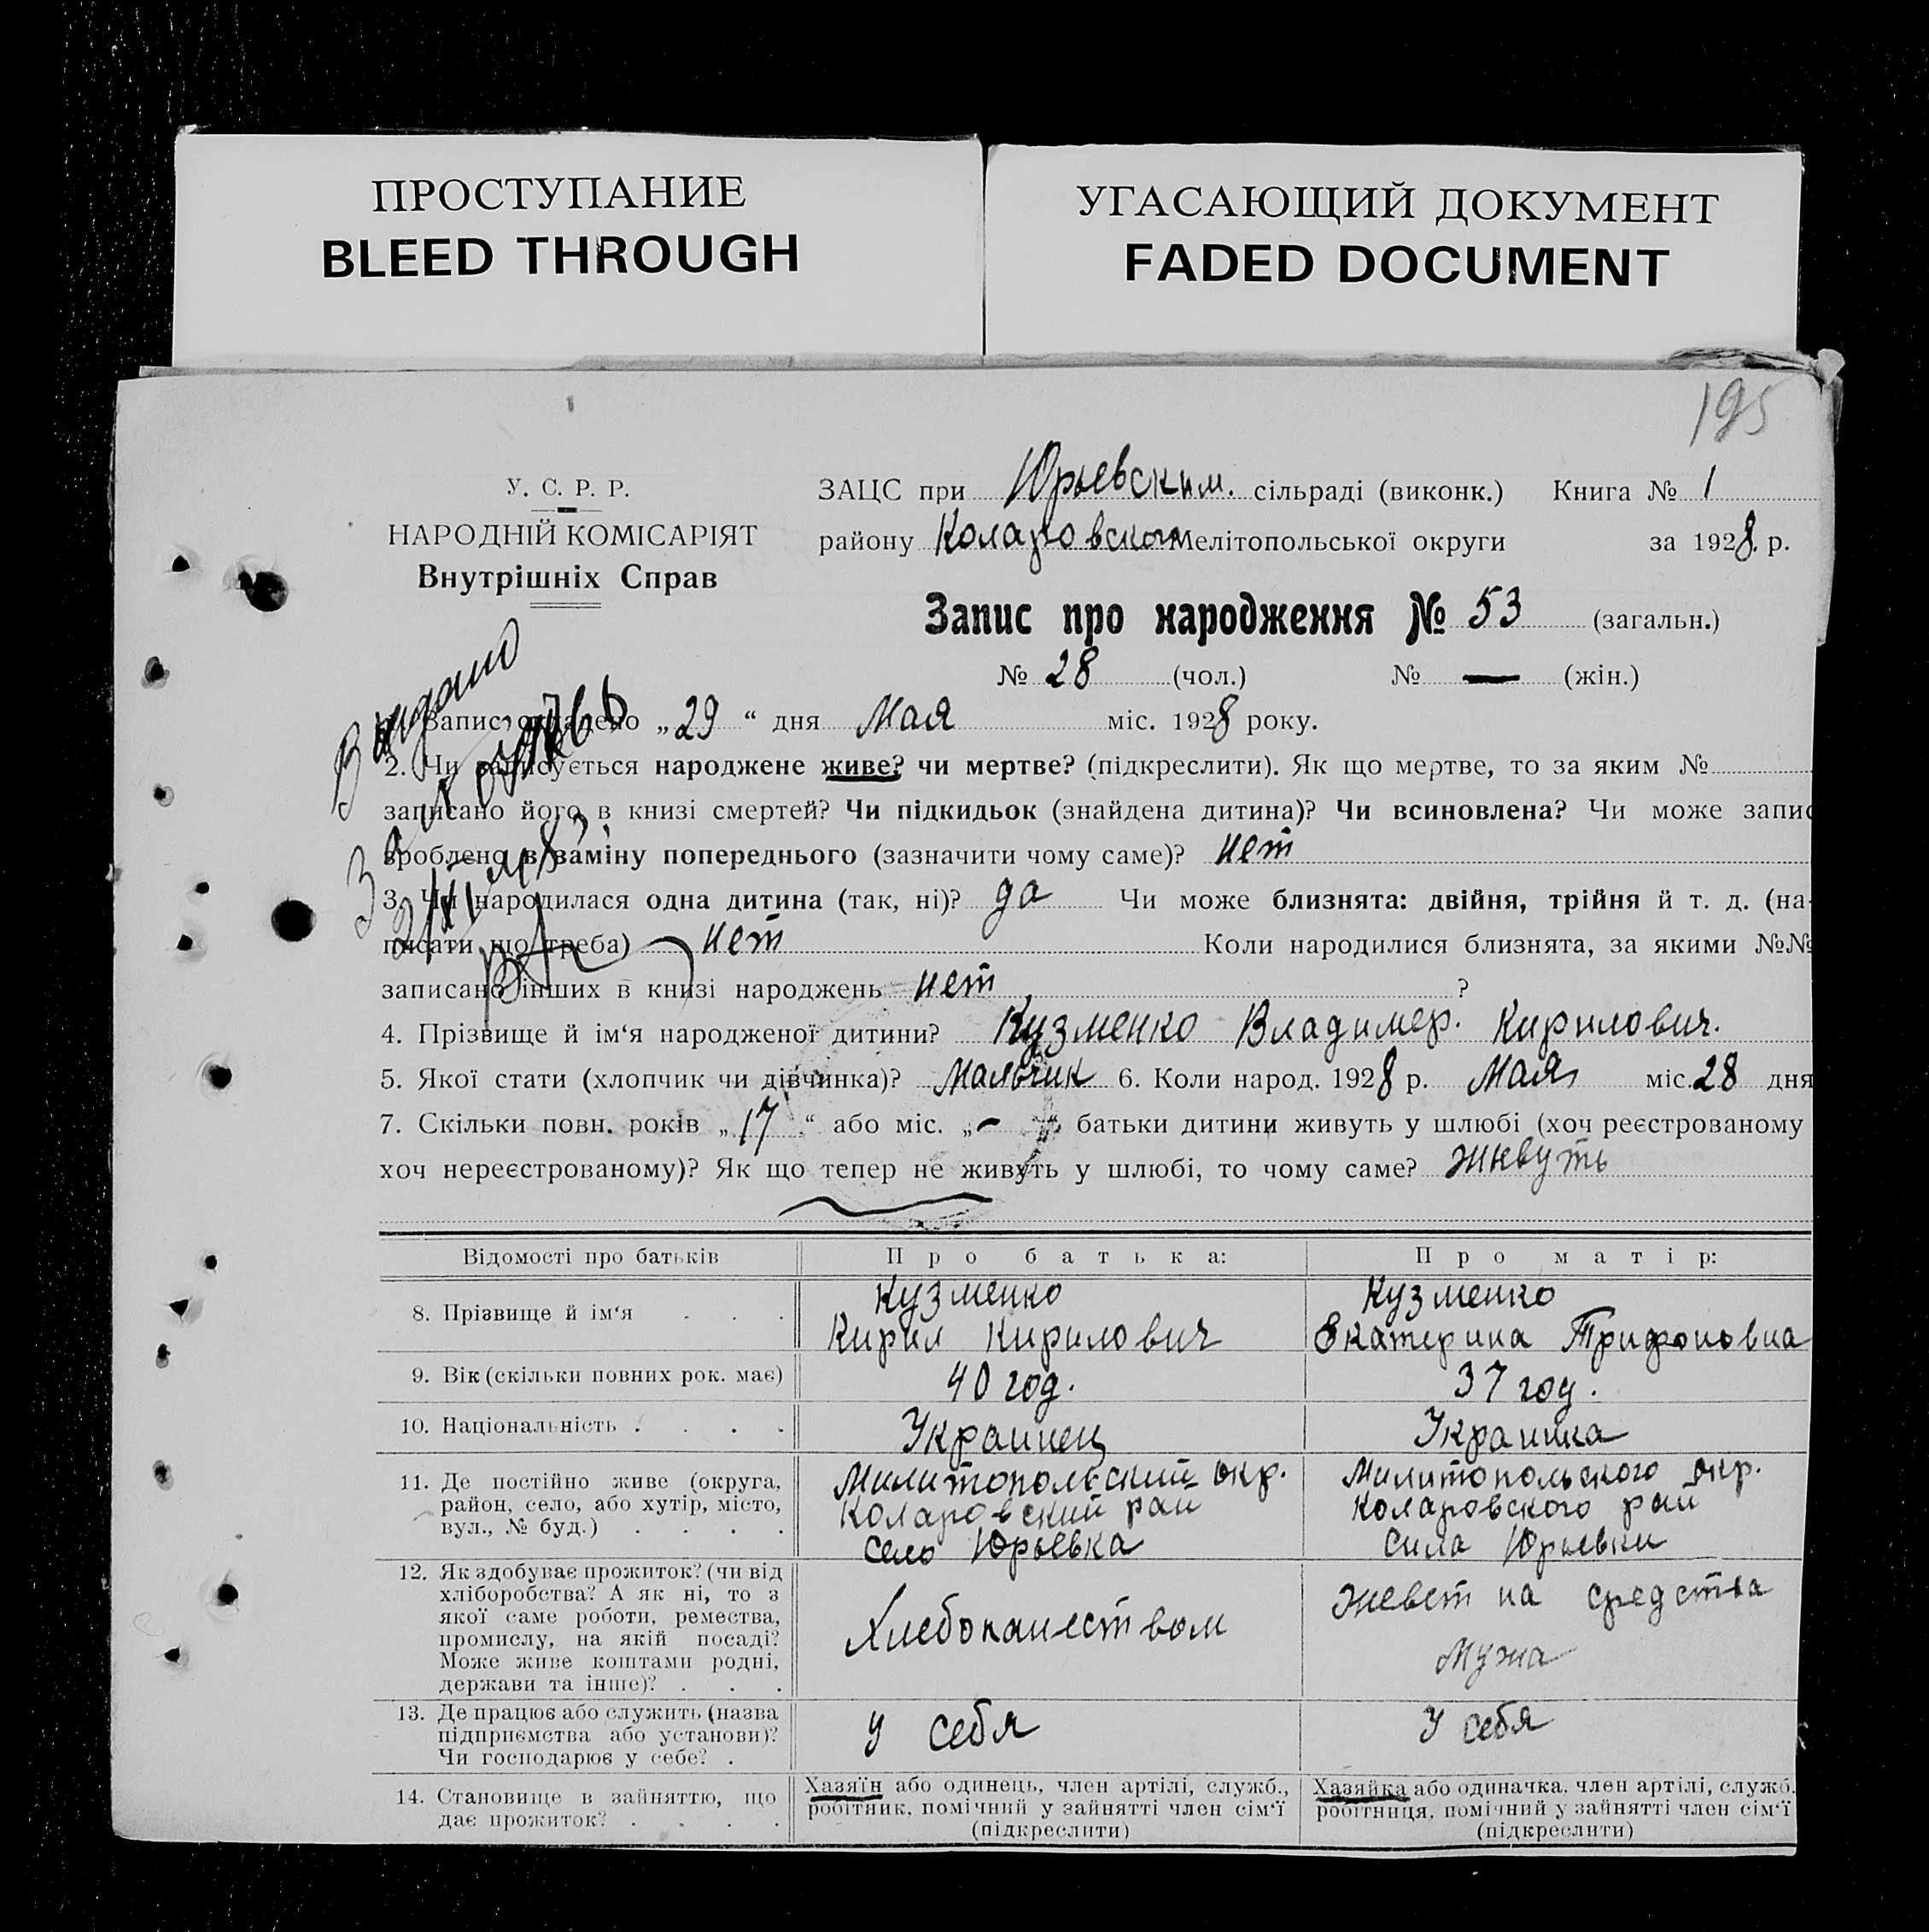 ПРОСТУПАНИЕ
BLEED THROUGH
УГАСАЮЩИЙ ДОКУМЕНТ
FADED DOCUMENT
195
У. С. Р. Р.
НАРОДНІЙ КОМІСАРІЯТ
Внутрішніх Справ
ЗАЦС при Юрьевским. сільраді (виконк.) Книга № 1
району Коларовского Мелітопольської округи за 1928 р.
Запис про народження № 53 (загальн.)
№ 28 (чол.) № — (жін.)
Видано
Запис складено „29“ дня Мая міс. 1928 року.
2. Чи записується народжене живе? чи мертве? (підкреслити). Як що мертве, то за яким №
записано його в книзі смертей? Чи підкидьок (знайдена дитина)? Чи всиновлена? Чи може запис
зроблено в заміну попереднього (зазначити чому саме)? нет
3. Чи народилася одна дитина (так, ні)? да Чи може близнята: двійня, трійня й т. д. (на-
писати що треба) нет Коли народилися близнята, за якими №№
записано інших в книзі народжень нет ?
4. Прізвище й ім‘я народженої дитини? Кузменко Владимер. Кирилович.
5. Якої стати (хлопчик чи дівчинка)? Мальчик 6. Коли народ. 1928 р. Мая міс. 28 дня
7. Скільки повн. років „17“ або міс. „–“ батьки дитини живуть у шлюбі (хоч реєстрованому
хоч нереєстрованому)? Як що тепер не живуть у шлюбі, то чому саме? живуть
Відомості про батьків
Про батька:
Про матір:
8. Прізвище й ім‘я . . .
Кузменко
Кирил Кирилович
Кузменко
Екатерина Трифоновна
9. Вік (скільки повних рок. має)
40 год.
37 год.
10. Національність . . . .
Украинец
Украинка
11. Де постійно живе (округа,
район, село, або хутір, місто,
вул., № буд.) . . . .
Милитопольский окр.
Коларовский рай
село Юрьевка
Милитопольского окр.
Коларовского рай
сила Юрьевки
12. Як здобуває прожиток? (чи від
хліборобства? А як ні, то з
якої саме роботи, ремества,
промислу, на якій посаді?
Може живе коштами родні,
держави та інше)? . . .
Хлебопашеством
живет на средства
мужа
13. Де працює або служить (назва
підприємства або установи)?
Чи господарює у себе? .
у себя
у себя
14. Становище в зайняттю, що
дає прожиток? . . . .
Хазяїн або одинець, член артілі, служб.,
робітник, помічний у зайнятті член сім‘ї
(підкреслити)
Хазяйка або одиначка. член артілі, служб.
робітниця, помічний у зайнятті член сім‘ї
(підкреслити)